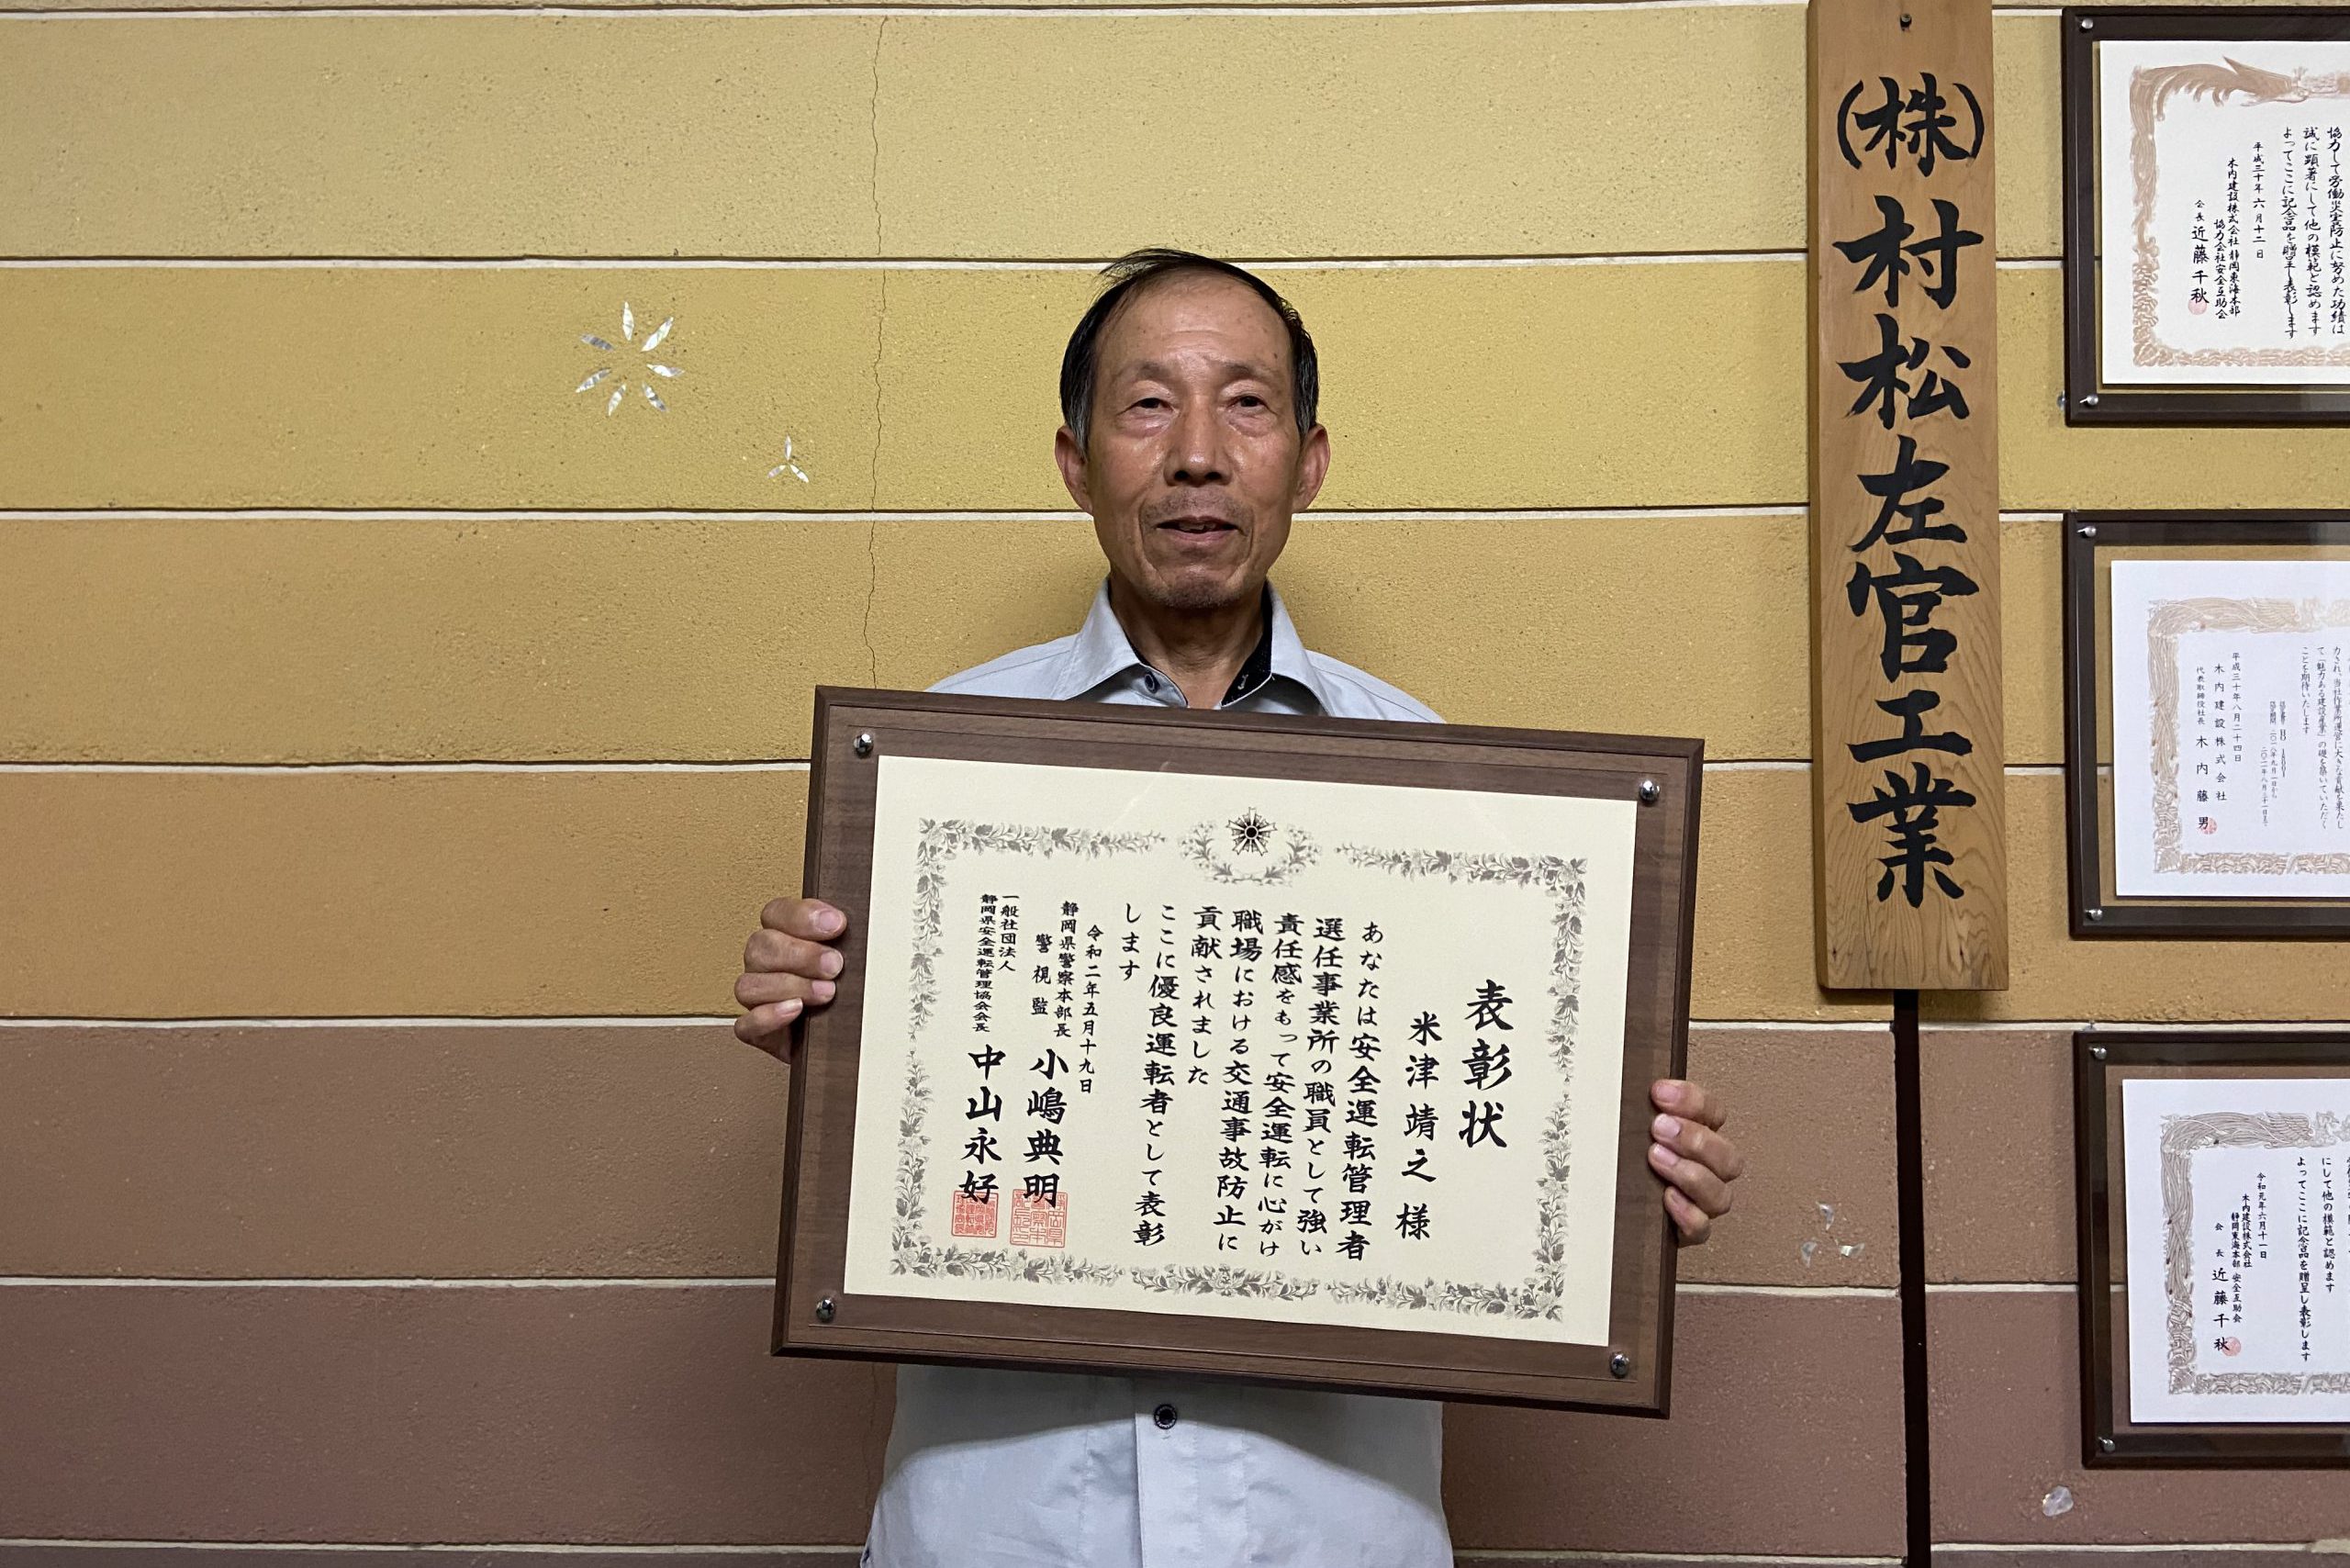 表彰状
米津靖之様
あなたは安全運転管理者
選任事業所の職員として強い
責任感をもって安全運転に心がけ
職場における交通事故防止に
貢献されました
ここに優良運転者として表彰
します
令和二年五月十九日
静岡県警察本部長
警視監 小嶋典明
一般社団法人
静岡県安全運転管理協会会長 中山永好
(株)村松左官工業
協力して労働災害防止に努めた功績は
誠に顕著にして他の模範と認めます
よってここに記念品を贈呈し表彰します
平成三十年六月十二日
木内建設株式会社静岡東海本部
協力会社安全互助会
会長 近藤千秋
力され、当社作業所運営に大きな貢献を果たし
て「魅力ある建設産業」の礎を築いていただく
ことを期待いたします
平成三十年八月二十四日
木内建設株式会社
代表取締役社長 木内藤男
にして他の模範と認めます
よってここに記念品を贈呈し表彰します
令和元年六月十一日
木内建設株式会社
静岡東海本部 安全互助会
会長 近藤千秋